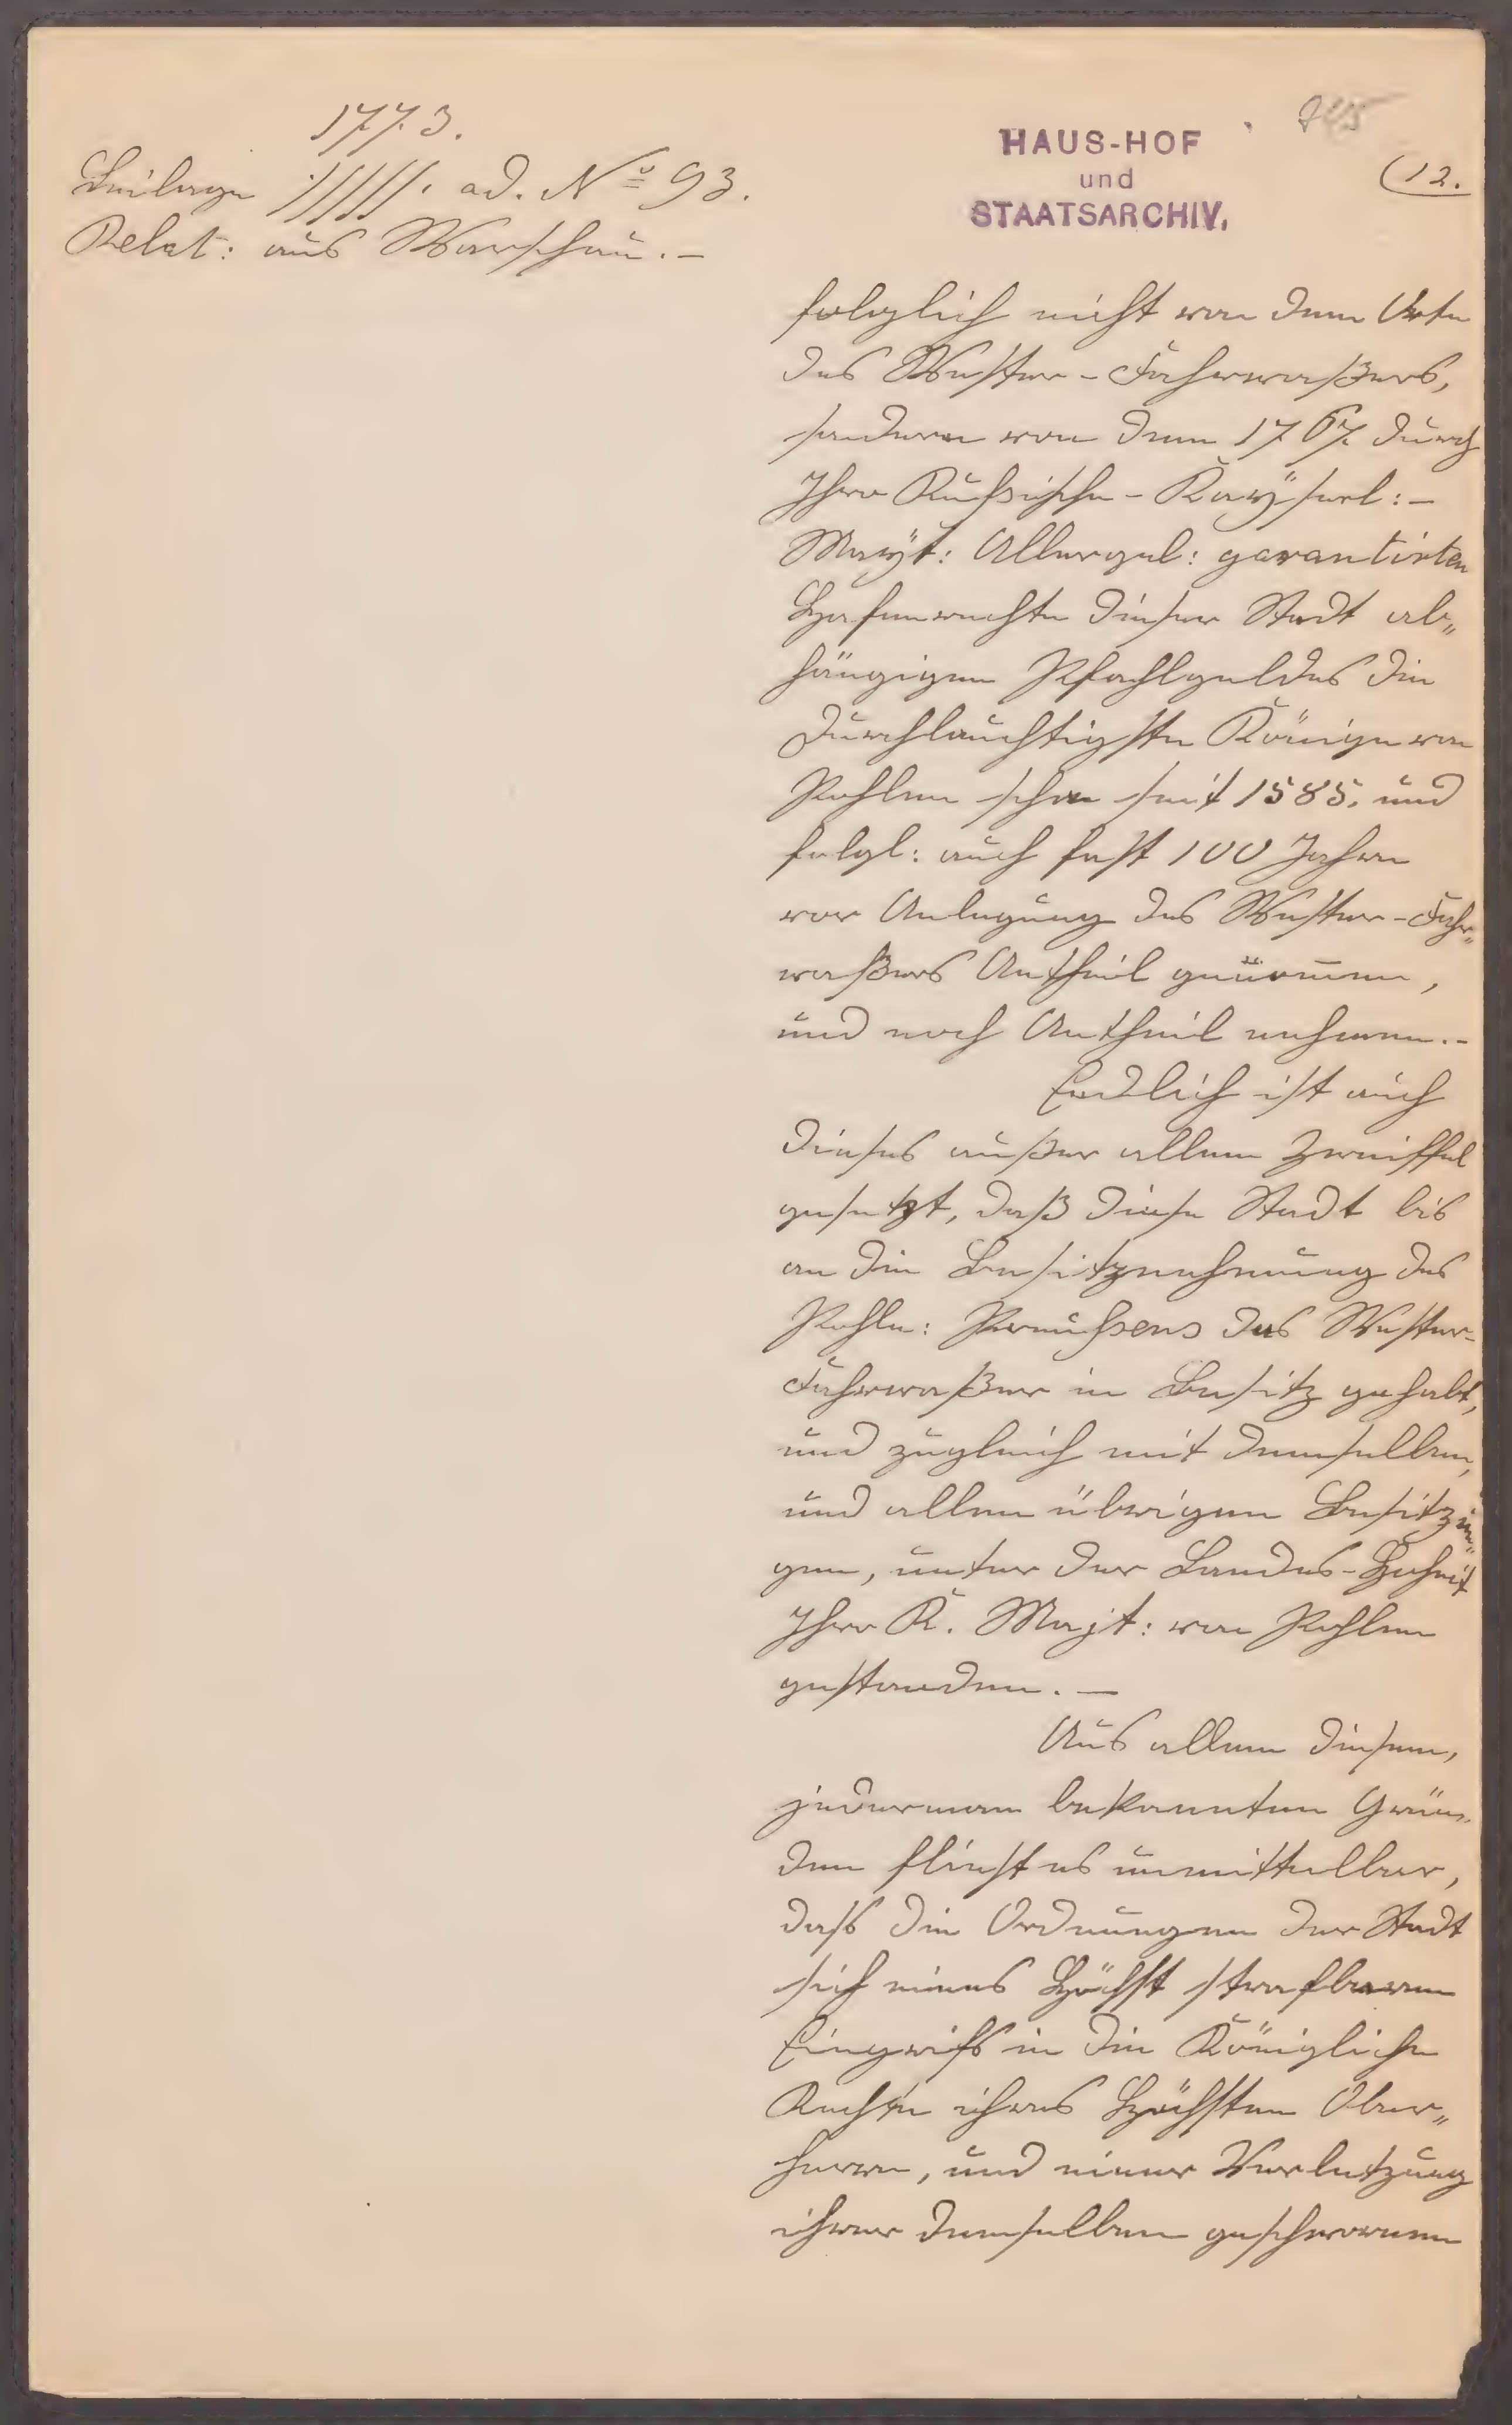 1773.
Beilage ·/////. ad. No 93.
Relat: aus Warschau. –
HAUS-HOF
und
STAATSARCHIV.
(12.
folglich nicht von dem Orte
des Wester-Fahrwaßers,
sondern von dem 1767. durch
Ihro Rußische-Kaÿserl:–
Maÿt: Allergd: garantirten
Hafenrechte dieser Stadt ab„
hängigen Pfahlgeldes die
Durchlauchtigste Könige von
Pohlen schon seit 1585. und
folgl: auch fast 100 Jahre
vor Anlegung des Wester-Fahr„
waßers Antheil genomen,
und noch Antheil nehmen. –
Endlich ist auch
dieses außer allem Zweiffel
gesetzt, daß diese Stadt bis
an die Besitznehmung des
Pohln: Preußens das Wester-
Fahrwaßer in Besitz gehabt,
und zugleich mit demselben,
und allen übrigen Besitzun„
gen, unter der Landes-Hoheit
Ihro K. Majt: von Pohlen
gestanden. –
Aus allem diesem,
jederman bekannten Grün„
den fliest es unmittelbar,
dass die Ordnungen der Stadt
sich eines höchst strafbaren
Eingrifs in die Königliche
Rechte ihres Höchsten Ober„
herrn, und einer Verletzung
ihrer demselben geschworenen